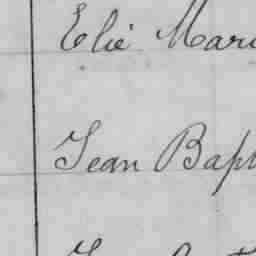 Elie Mari
Jean Bapt